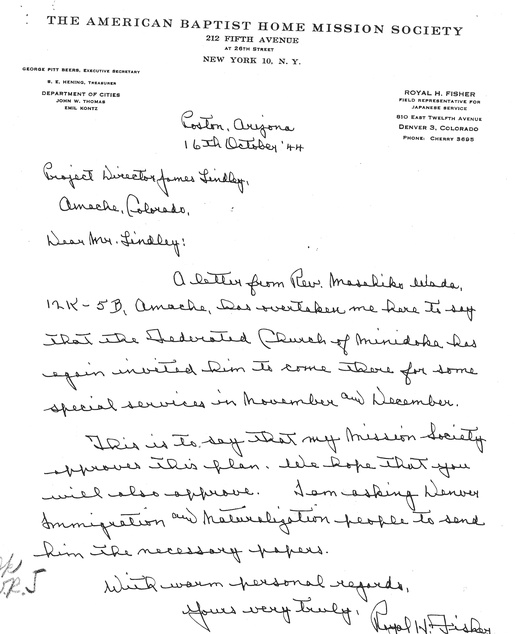 THE AMERICAN BAPTIST HOME MISSION SOCIETY
212 FIFTH AVENUE
AT 26TH STREET
NEW YORK 10, N. Y.
GEORGE PITT BEERS, EXECUTIVE SECRETARY
S. E. HENING, TREASURER
DEPARTMENT OF CITIES
JOHN W. THOMAS
EMIL KONTZ
ROYAL H. FISHER
FIELD REPRESENTATIVE FOR
JAPANESE SERVICE
810 EAST TWELFTH AVENUE
DENVER 3, COLORADO
PHONE: CHERRY 3695
Poston, Arizona
16th October '44
Project Director James Lindley,
Amache, Colorado,
Dear Mr. Lindley:
A letter from Rev. Masahiko Wada,
12K-5B, Amache, has overtaken me here to say
that the Federated Church of Minidoka has
again invited him to come there for some
special services in November and December.
This is to say that my Mission Society
approves this plan. We hope that you
will also approve. I am asking Denver
Immigration and Naturalization people to send
him the necessary papers.
With warm personal regards,
Yours very truly, Royal H. Fisher